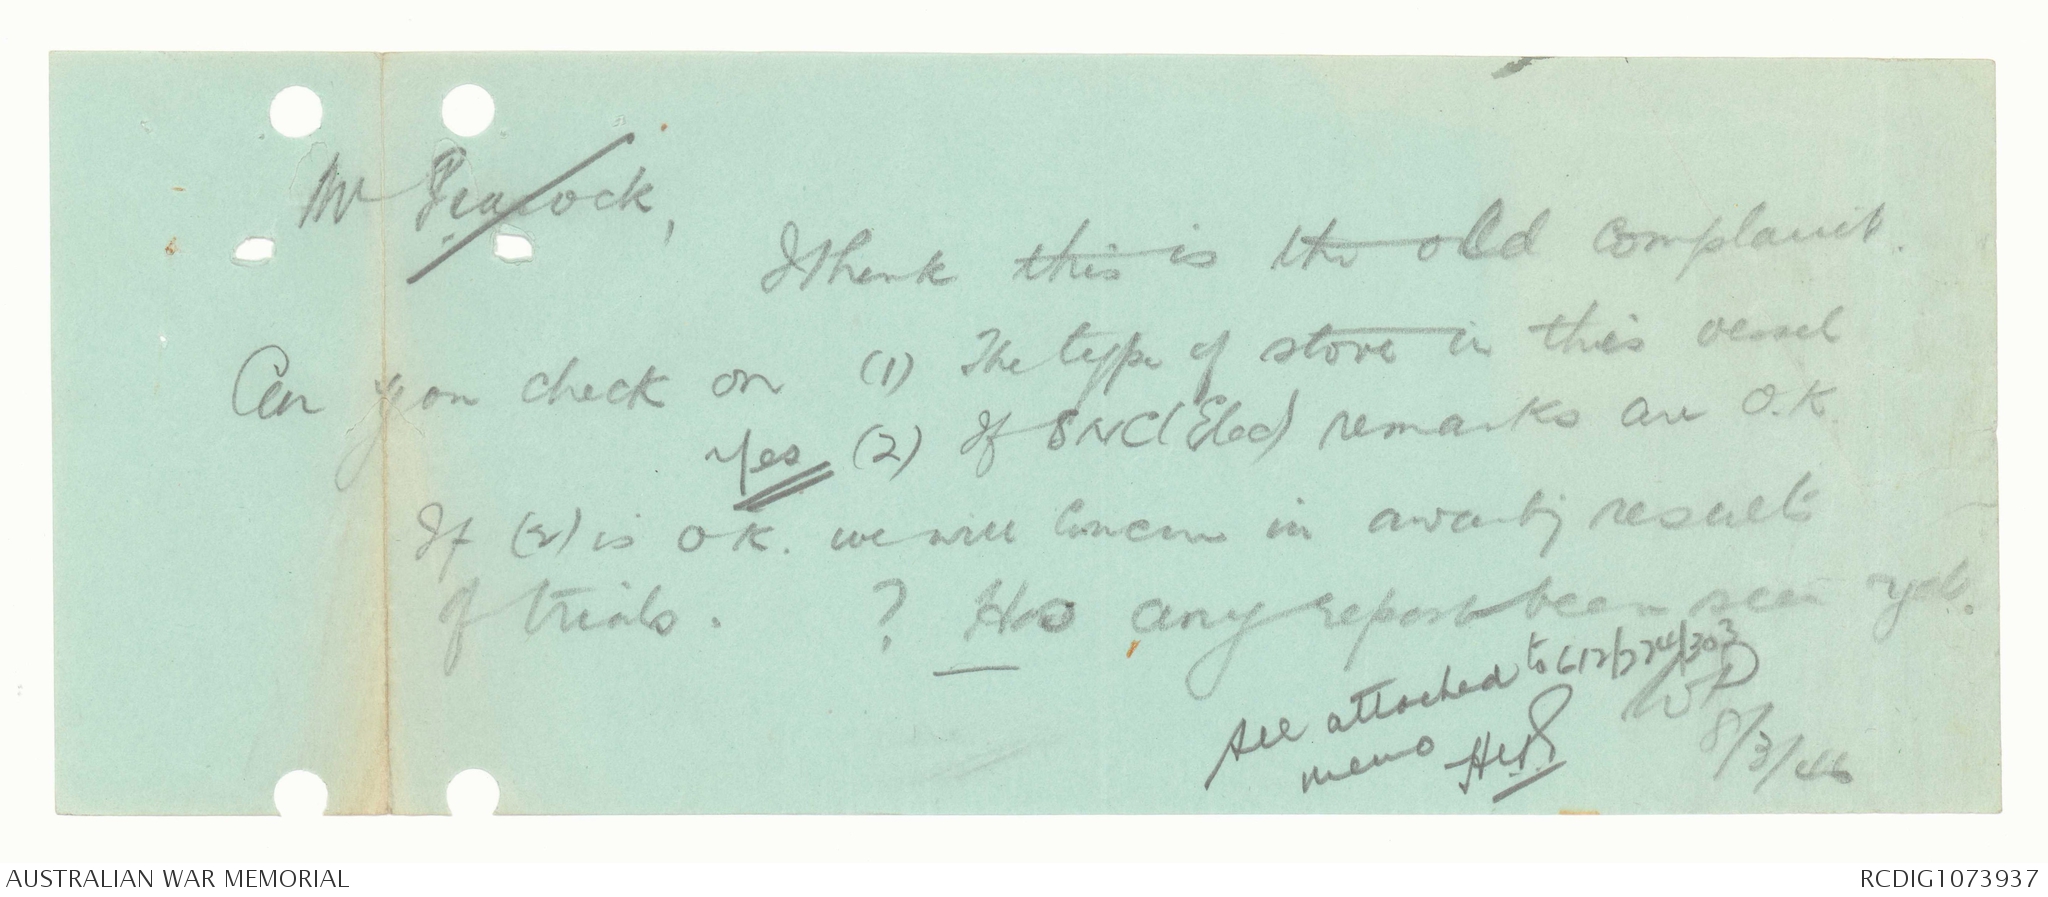 Mr Peacock,
I think this is the old complaint.
Can you check on (1) The type of stove in this vessel
Yes (2) If SNC (Elec) remarks are O.K.
If (2) is O.K. we will concur in awaiting results
of trials. ? Has any report been seen yet.
See attached to 612/224/303
memo
8/3/46
AUSTRALIAN WAR MEMORIAL
RCDIG1073937